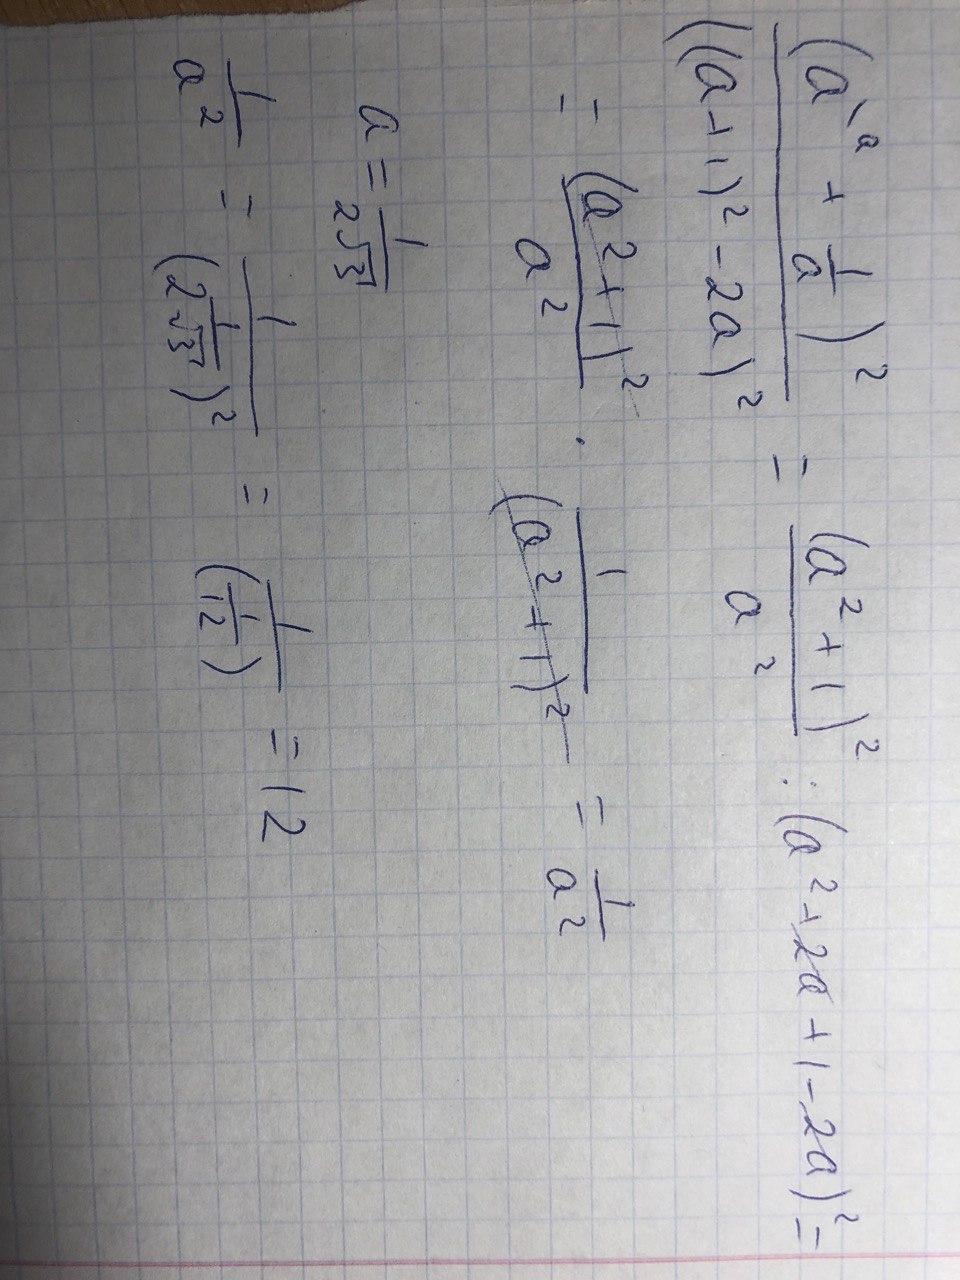 (a^{\a} + 1/a)² / ((a+1)² - 2a)² = (a²+1)² / a² : (a²+2a+1-2a)² =
= (a²+1)² / a² · 1 / (a²+1)² = 1 / a²
a = 1 / 2√3
1 / a² = 1 / (2 1/√3)² = 1 / (1/12) = 12